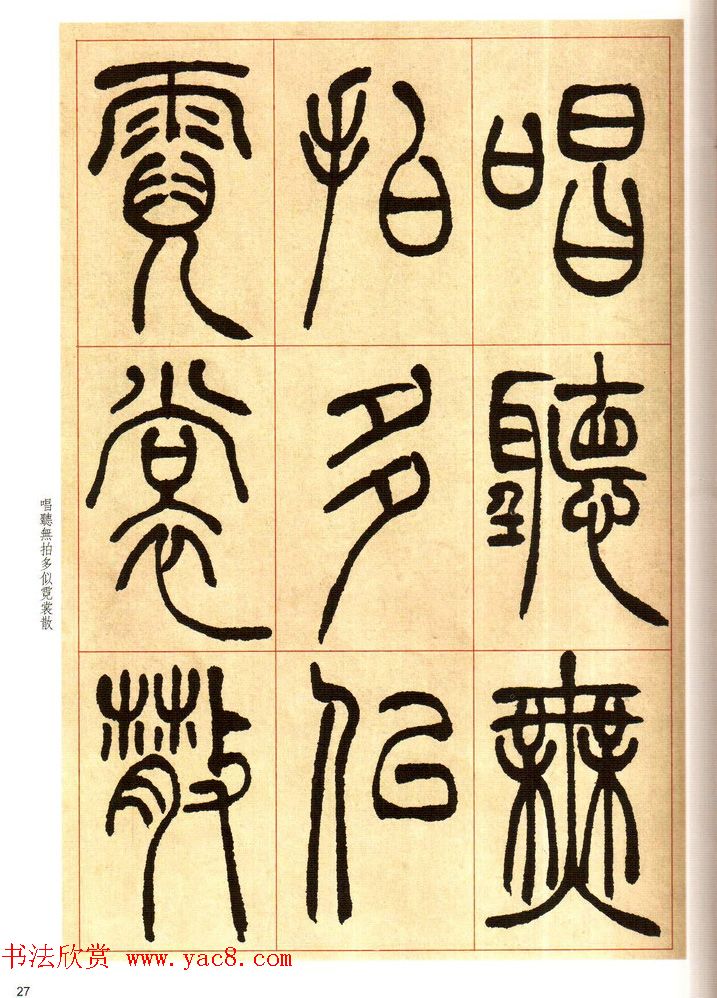 唱聽無
拍多似
霓裳散
唱聽無拍多似霓裳散
书法欣赏 www.yac8.com
27